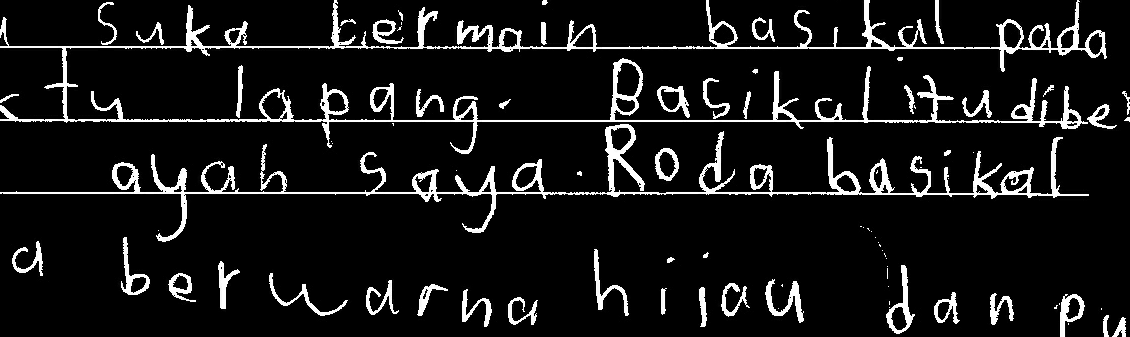 suka bermain basikal pada
lapang. Basikal itu
ayah saya. Roda basikal
a berwarna hijau dan